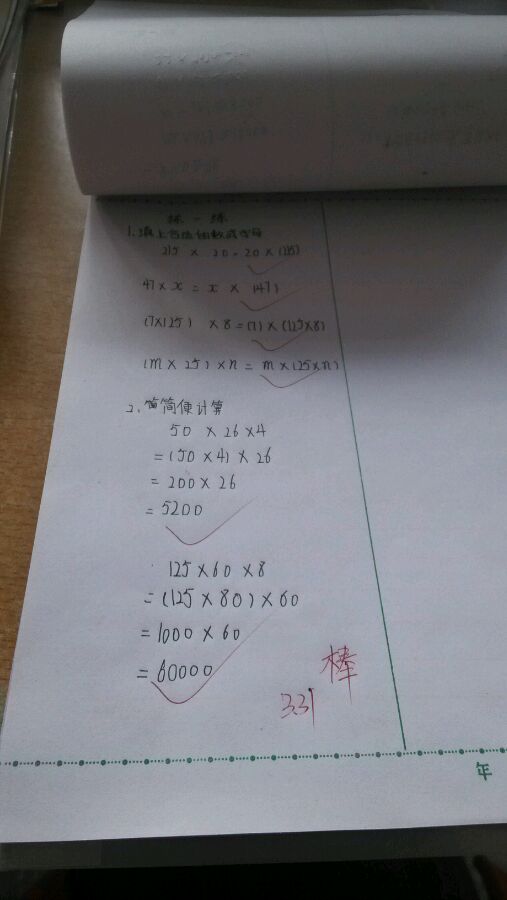 练一练
1.填上合适的数或字母
215 × 20=20×(215)
47×x=x×(47)
(7×125)×8=(7)×(125×8)
(m×25)×n=m×(25×n)
2.简便计算
50×26×4
=(50×4)×26
=200×26
=5200
125×60×8
=(125×80)×60
=1000×60
=60000
棒
3.31
年